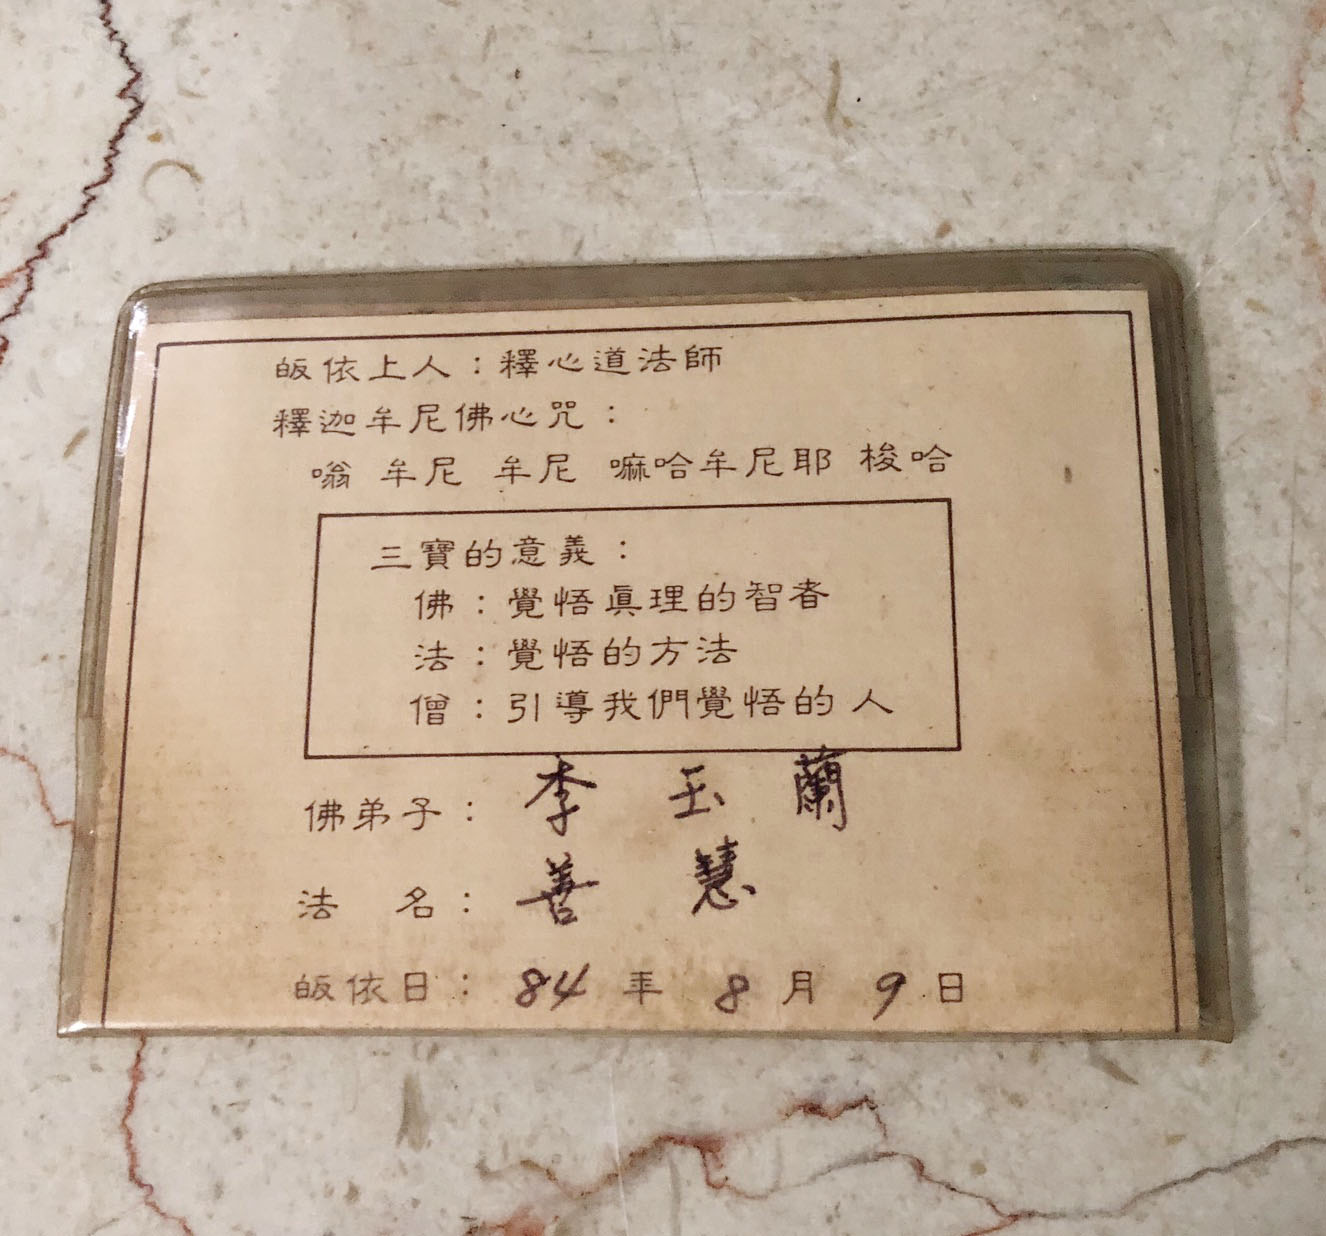 皈依上人：釋心道法師
釋迦牟尼佛心咒：
嗡 牟尼 牟尼 嘛哈牟尼耶 梭哈
三寶的意義：
佛：覺悟眞理的智者
法：覺悟的方法
僧：引導我們覺悟的人
佛弟子：李玉蘭
法 名：善慧
皈依日：84 年 8 月 9 日